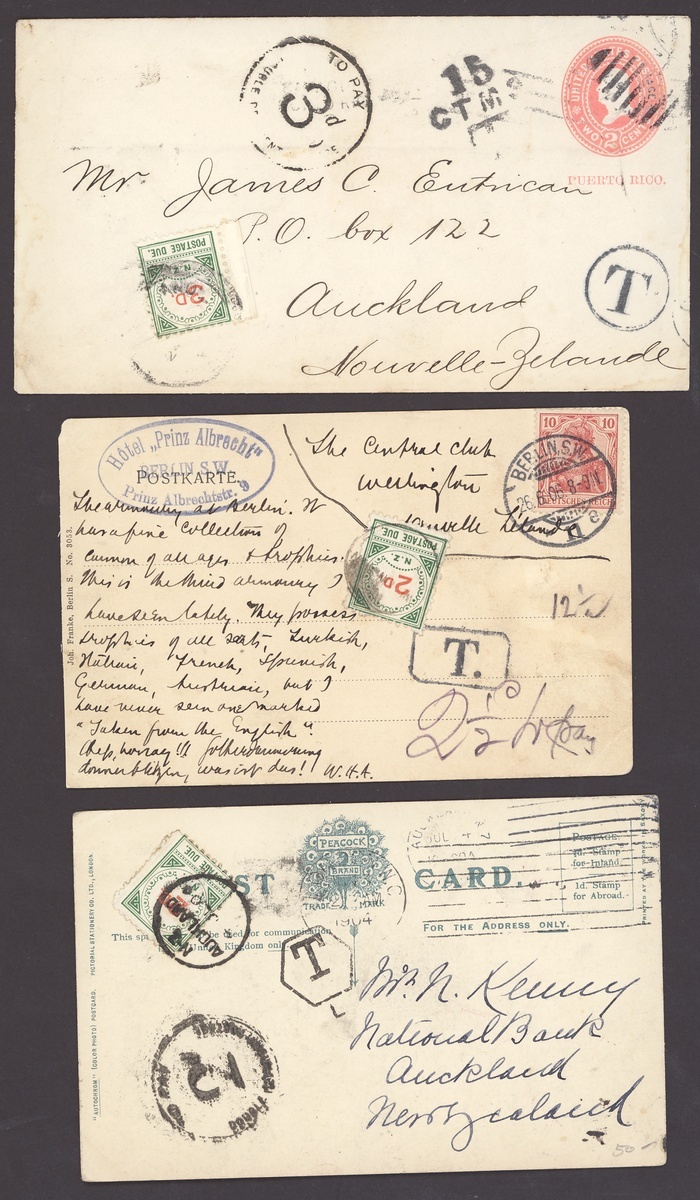 TO PAY
3
d
15
CTMS
T
UNITED
TWO 2 CENT
PUERTO RICO.
Mr James C. Entrican
P.O. box 122
Auckland
Nouvelle-Zelande
POSTAGE DUE.
N.Z.
3D.
T
Hôtel „Prinz Albrecht"
BERLIN S.W.
Prinz Albrechtstr. 9
POSTKARTE.
The Central Club
Wellington
10 10
DEUTSCHES REICH
BERLIN, S.W.
26.6.06. 8-9N.
The armoury at Berlin. It
has a fine collection of
cannon of all ages & trophies.
This is the third armoury I
have seen lately. They possess
trophies of all sorts, Turkish,
Italian, French, Spanish,
German, Austrian, but I
have never seen one marked
"Taken from the English".
was ist das! W.H.A.
Joh. Franke, Berlin S. No. 3053.
POSTAGE DUE.
N.Z.
2D.
12½
T.
2½
pay
PEACOCK
BRAND
TRADE MARK
POST CARD.
JUL 4
1904
POSTAGE.
½d. Stamp
for Inland.
1d. Stamp
for Abroad.
FOR THE ADDRESS ONLY.
This sp be used for communication
United Kingdom only.
POSTAGE DUE.
AUCKLAND
N.Z.
T
N. Kenny
National Bank
Auckland
New Zealand
2
"AUTOCHROM" (COLOR PHOTO) POSTCARD. PICTORIAL STATIONERY CO. LTD., LONDON.
50-